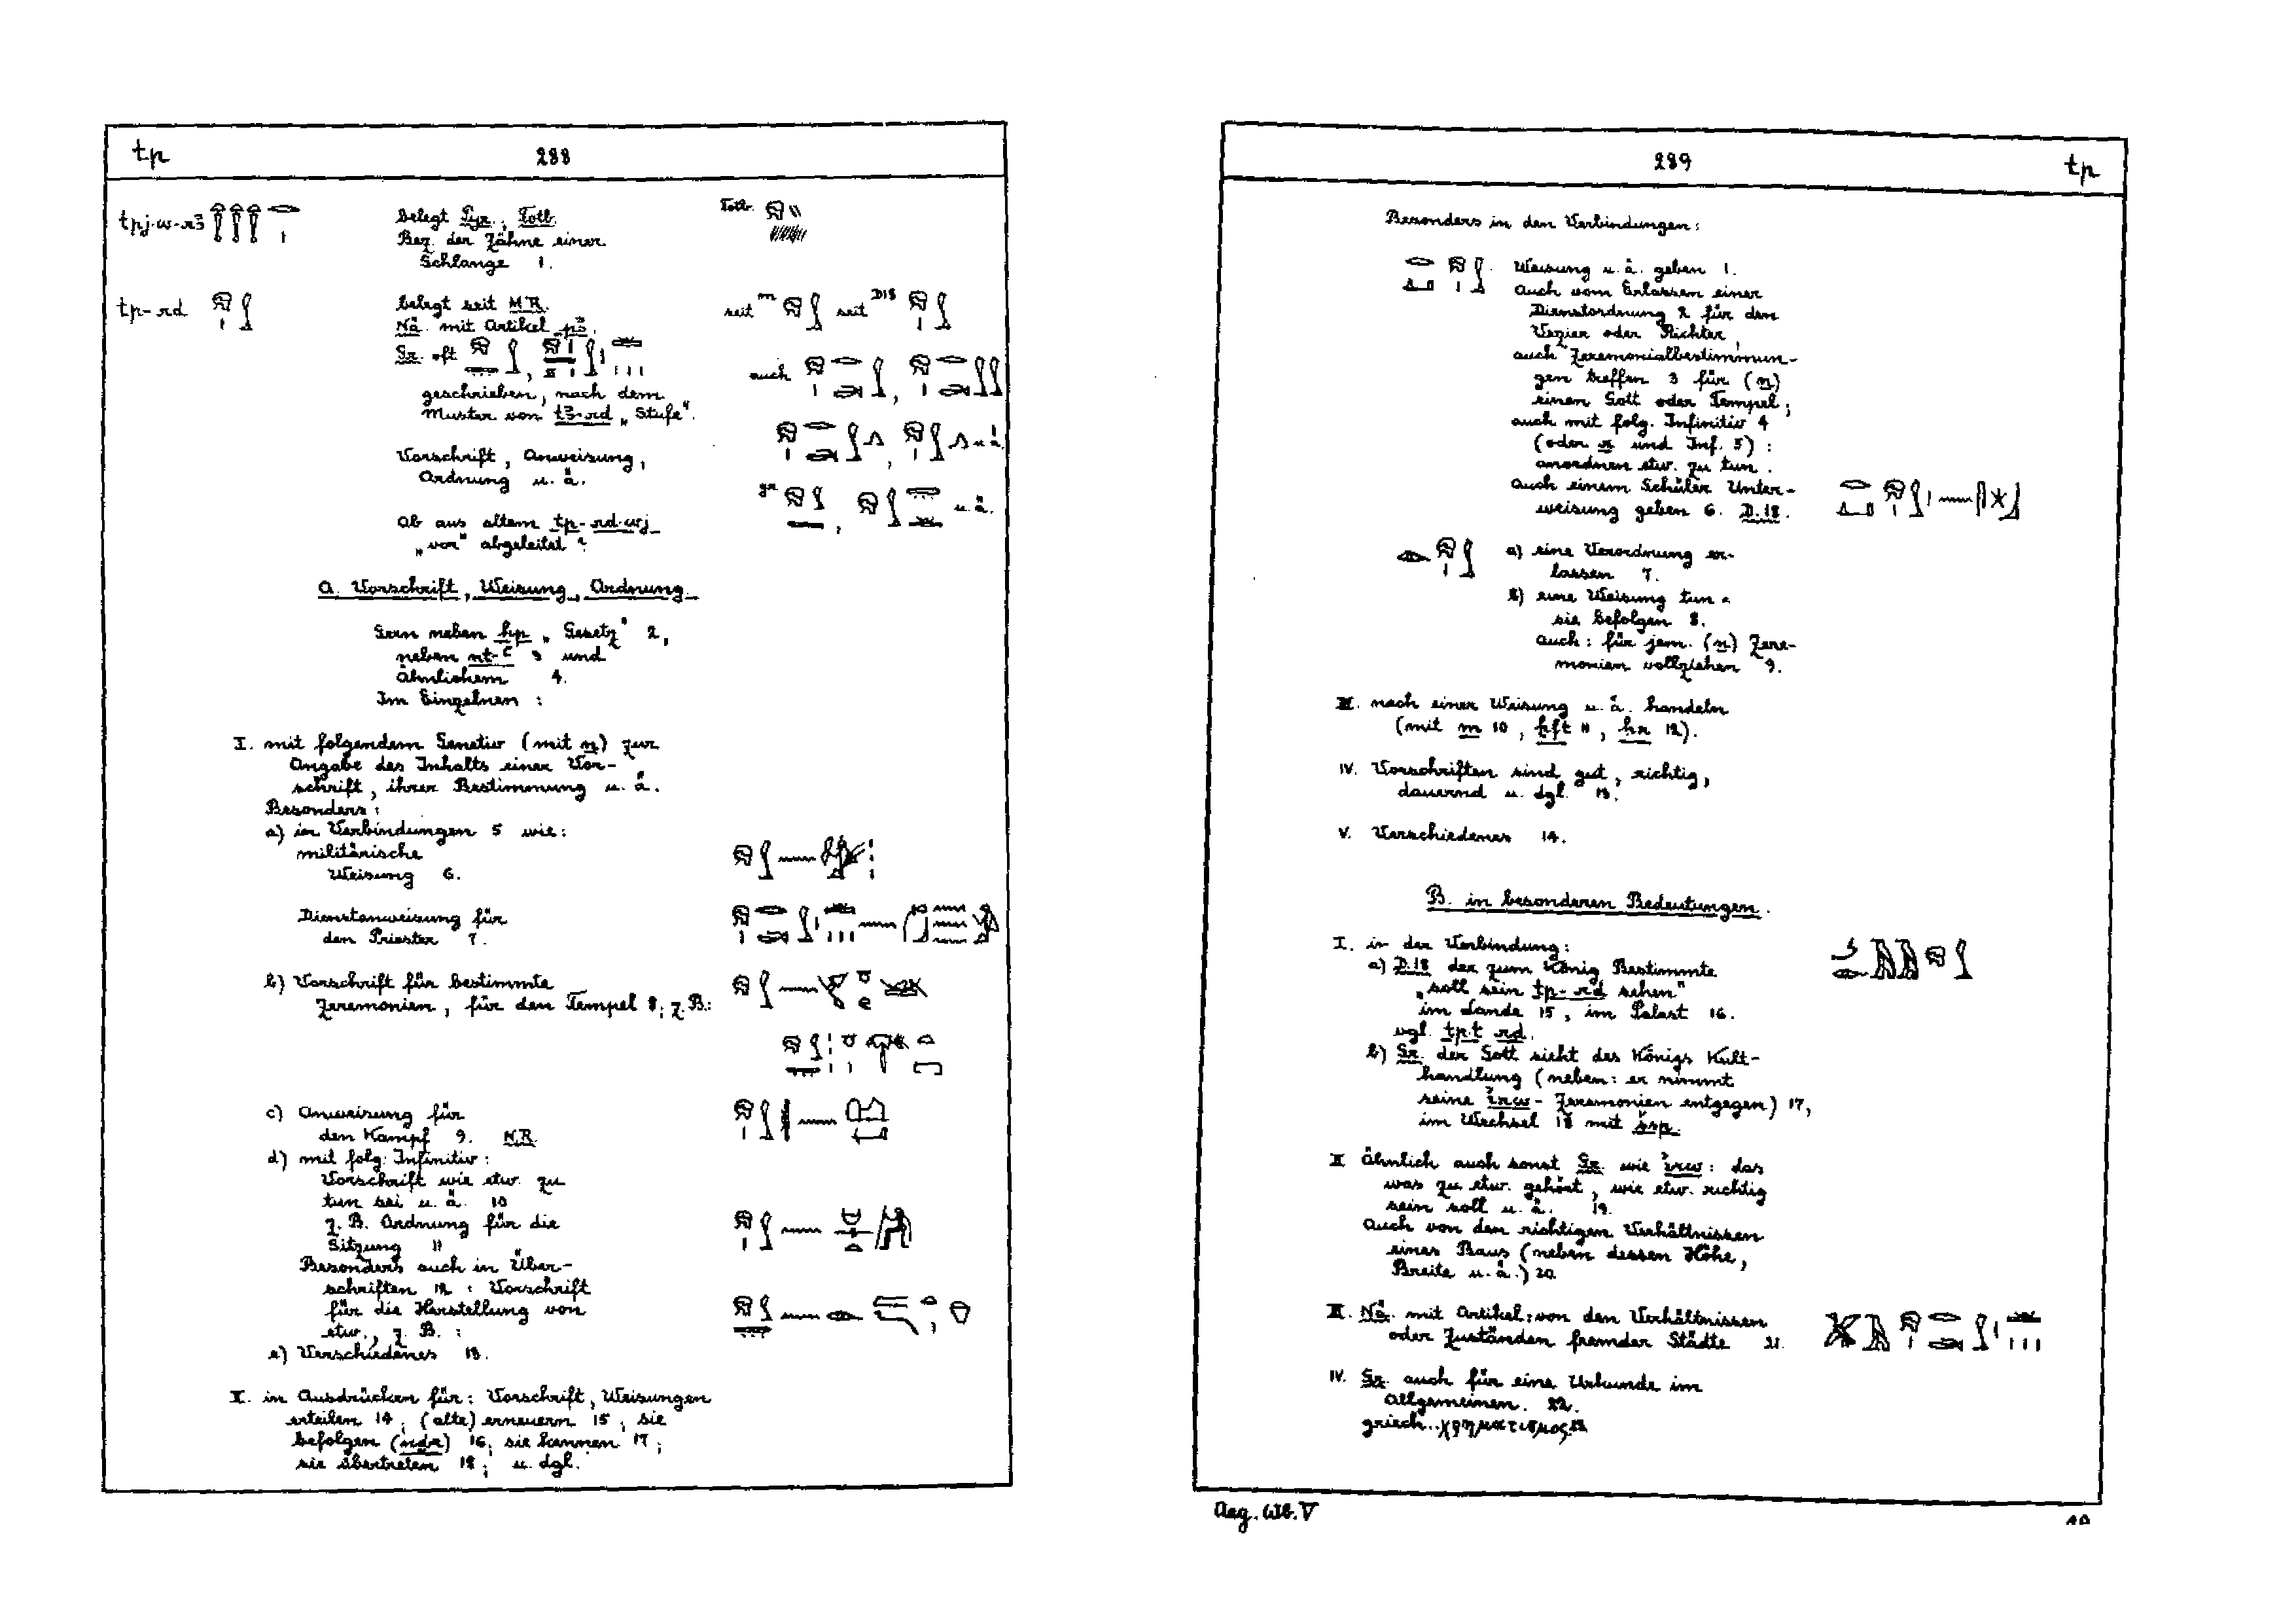 tp 288
tpj·w-r3
belegt Pyr.; Totb.
Bez. der Zähne einer
Schlange 1.
Totb.
tp-rd
belegt seit M.R.
Nä. mit Artikel p3.
Gr. oft
geschrieben, nach dem
Muster von t3-rd „Stufe".
Vorschrift, Anweisung,
Ordnung u. ä.
Ob aus altem tp-rd·wj
„vor" abgeleitet?
seit m seit D18
auch
u. ä.
gr u. ä.
A. Vorschrift, Weisung, Ordnung.
Gern neben hp „Gesetz" 2,
neben nt-ʿ 3 und
ähnlichem 4.
Im Einzelnen:
I. mit folgendem Genetiv (mit n) zur
Angabe des Inhalts einer Vor-
schrift, ihrer Bestimmung u. ä.
Besonders:
a) in Verbindungen 5 wie:
militärische
Weisung 6.
Dienstanweisung für
den Priester 7.
b) Vorschrift für bestimmte
Zeremonien, für den Tempel 8; z. B.:
c) Anweisung für
den Kampf 9. N.R.
d) mit folg. Infinitiv:
Vorschrift wie etw. zu
tun sei u. ä. 10
z. B. Ordnung für die
Sitzung 11
Besonders auch in Über-
schriften 12: Vorschrift
für die Herstellung von
etw., z. B.:
e) Verschiedenes 13.
II. in Ausdrücken für: Vorschrift, Weisungen
erteilen 14; (alte) erneuern 15; sie
befolgen (ndr) 16; sie kennen 17;
sie übertreten 18; u. dgl.
289 tp
Besonders in den Verbindungen:
Weisung u. ä. geben 1.
auch vom Erlassen einer
Dienstordnung 2 für den
Vezier oder Richter,
auch Zeremonialbestimmun-
gen treffen 3 für (n)
einen Gott oder Tempel;
auch mit folg. Infinitiv 4
(oder r und Inf. 5):
anordnen etw. zu tun.
auch einem Schüler Unter-
weisung geben 6. D.18.
a) eine Verordnung er-
lassen 7.
b) eine Weisung tun =
sie befolgen 8.
auch: für jem. (n) Zere-
monien vollziehen 9.
III. nach einer Weisung u. ä. handeln
(mit m 10, ḫft 11, ḥr 12).
IV. Vorschriften sind gut, richtig,
dauernd u. dgl. 13.
V. Verschiedenes 14.
B. in besonderen Bedeutungen.
I. in der Verbindung:
a) D.18 der zum König Bestimmte
„soll sein tp-rd sehen"
im Lande 15, im Palast 16.
vgl. tp·t rd.
b) Gr. der Gott sieht des Königs Kult-
handlung (neben: er nimmt
seine irw-Zeremonien entgegen) 17,
im Wechsel 18 mit šsp.
II. Ähnlich auch sonst Gr. wie irw: das
was zu etw. gehört, wie etw. richtig
sein soll u. ä. 19.
Auch von den richtigen Verhältnissen
eines Baus (neben dessen Höhe,
Breite u. ä.) 20.
III. Nä. mit Artikel: von den Verhältnissen
oder Zuständen fremder Städte 21.
IV. Gr. auch für eine Urkunde im
Allgemeinen. 22.
griech. χρηματισμος 23
Aeg. Wb. V